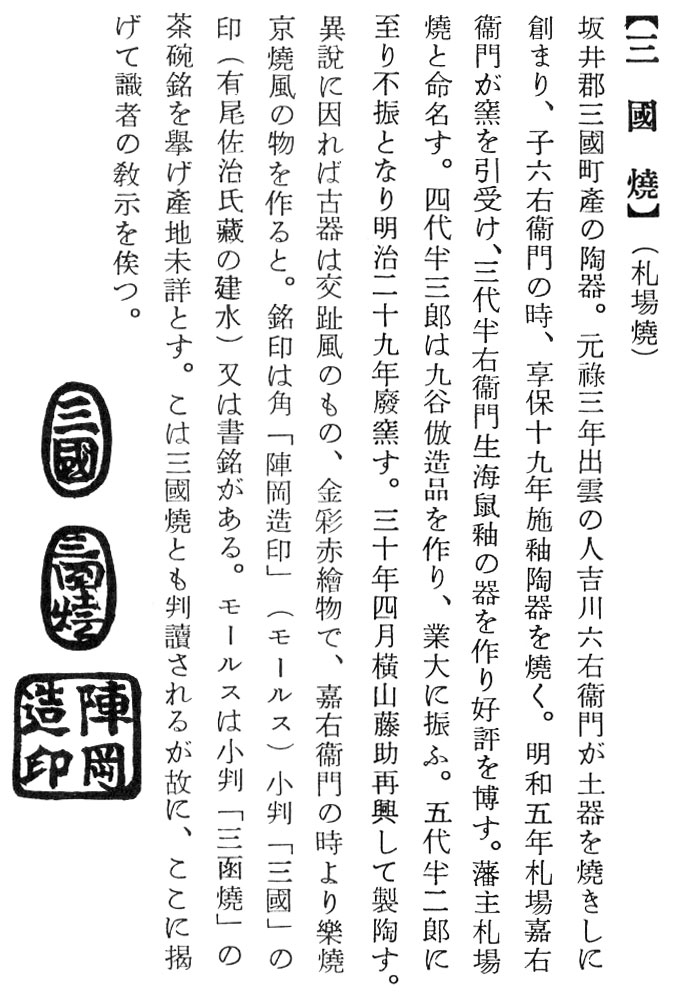 【三國燒】（札場燒）
坂井郡三國町產の陶器。元祿三年出雲の人吉川六右衞門が土器を燒きしに
創まり、子六右衞門の時、享保十九年施釉陶器を燒く。明和五年札場嘉右
衞門が窯を引受け、三代半右衞門生海鼠釉の器を作り好評を博す。藩主札場
燒と命名す。四代半三郎は九谷倣造品を作り、業大に振ふ。五代半二郎に
至り不振となり明治二十九年廢窯す。三十年四月橫山藤助再興して製陶す。
異說に因れば古器は交趾風のもの、金彩赤繪物で、嘉右衞門の時より樂燒
京燒風の物を作ると。銘印は角「陣岡造印」（モールス）小判「三國」の
印（有尾佐治氏藏の建水）又は書銘がある。モールスは小判「三函燒」の
茶碗銘を擧げ產地未詳とす。こは三國燒とも判讀されるが故に、ここに揭
げて識者の敎示を俟つ。
三國
三圀燒
陣岡
造印